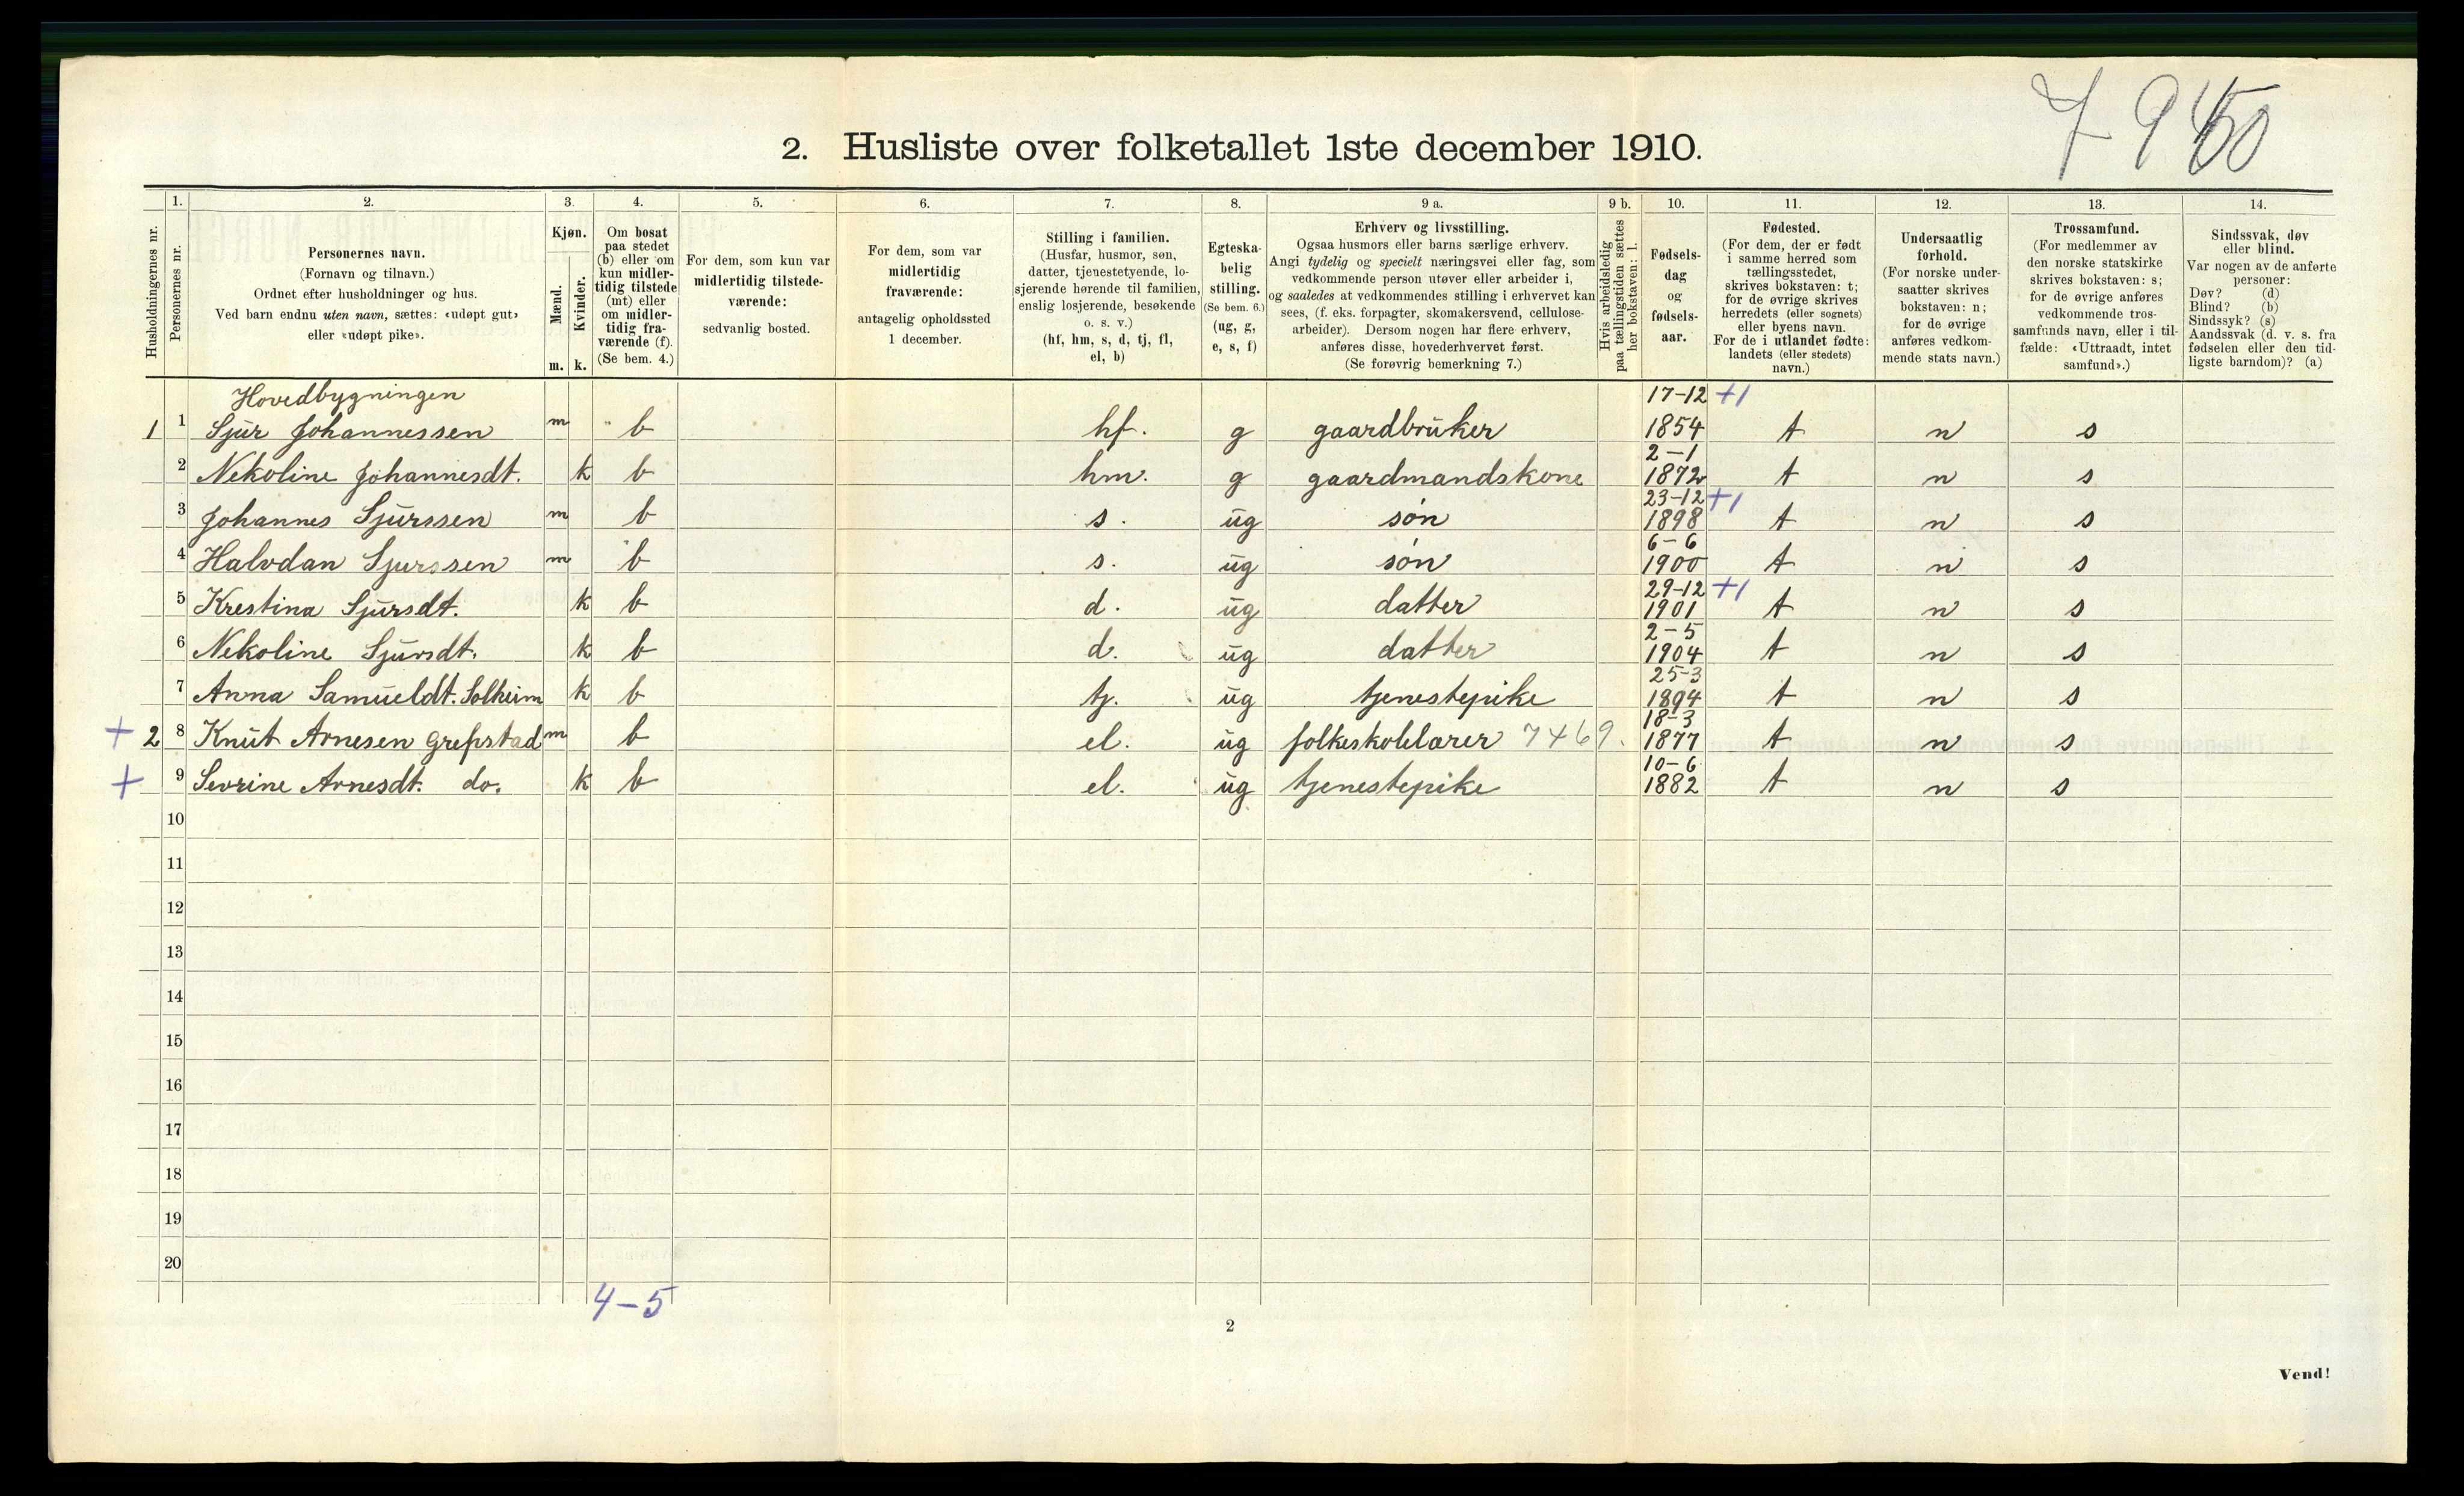 2. Husliste over folketallet 1ste december 1910.
1. 2. 3. 4. 5. 6. 7. 8. 9 a. 9 b. 10. 11. 12. 13. 14.
Husholdningernes nr.
Personernes nr.
Personernes navn.
(Fornavn og tilnavn.)
Ordnet efter husholdninger og hus.
Ved barn endnu uten navn, sættes: «udøpt gut»
eller «udøpt pike».
Kjøn.
Mænd.
Kvinder.
m. k.
Om bosat
paa stedet
(b) eller om
kun midler-
tidig tilstede
(mt) eller
om midler-
tidig fra-
værende (f).
(Se bem. 4.)
For dem, som kun var
midlertidig tilstede-
værende:
sedvanlig bosted.
For dem, som var
midlertidig
fraværende:
antagelig opholdssted
1 december.
Stilling i familien.
(Husfar, husmor, søn,
datter, tjenestetyende, lo-
sjerende hørende til familien,
enslig losjerende, besøkende
o. s. v.)
(hf, hm, s, d, tj, fl,
el, b)
Egteska-
belig
stilling.
(Se bem. 6.)
(ug, g,
e, s, f)
Erhverv og livsstilling.
Ogsaa husmors eller barns særlige erhverv.
Angi tydelig og specielt næringsvei eller fag, som
vedkommende person utøver eller arbeider i,
og saaledes at vedkommendes stilling i erhvervet kan
sees, (f. eks. forpagter, skomakersvend, cellulose-
arbeider). Dersom nogen har flere erhverv,
anføres disse, hovederhvervet først.
(Se forøvrig bemerkning 7.)
Hvis arbeidsledig
paa tællingstiden sættes
her bokstaven: l.
Fødsels-
dag
og
fødsels-
aar.
Fødested.
(For dem, der er født
i samme herred som
tællingsstedet,
skrives bokstaven: t;
for de øvrige skrives
herredets (eller sognets)
eller byens navn.
For de i utlandet fødte:
landets (eller stedets)
navn.)
Undersaatlig
forhold.
(For norske under-
saatter skrives
bokstaven: n;
for de øvrige
anføres vedkom-
mende stats navn.)
Trossamfund.
(For medlemmer av
den norske statskirke
skrives bokstaven: s;
for de øvrige anføres
vedkommende tros-
samfunds navn, eller i til-
fælde: «Uttraadt, intet
samfund».)
Sindssvak, døv
eller blind.
Var nogen av de anførte
personer:
Døv? (d)
Blind? (b)
Sindssyk? (s)
Aandssvak (d. v. s. fra
fødselen eller den tid-
ligste barndom)? (a)
Hovedbygningen 17-12 +1
1 1 Sjur Johannessen m b hf. g gaardbruker 1854 t n s
2-1
2 Nekoline Johannesdt. k b hm. g gaardmandskone 1872 t n s
23-12 +1
3 Johannes Sjurssen m b s. ug søn 1898 t n s
6-6
4 Halvdan Sjurssen m b s. ug søn 1900 t n s
29-12 +1
5 Krestina Sjursdt. k b d. ug datter 1901 t n s
2-5
6 Nekoline Sjursdt. k b d. ug datter 1904 t n s
25-3
7 Anna Samueldt. Solheim k b tj. ug tjenestepike 1894 t n s
18-3
+ 2 8 Knut Arnesen Grepstad m b el. ug folkeskolelærer 7469. 1877 t n s
10-6
+ 9 Sevrine Arnesdt. do. k b el. ug tjenestepike 1882 t n s
10
11
12
13
14
15
16
17
18
19
20
4-5
2
Vend!